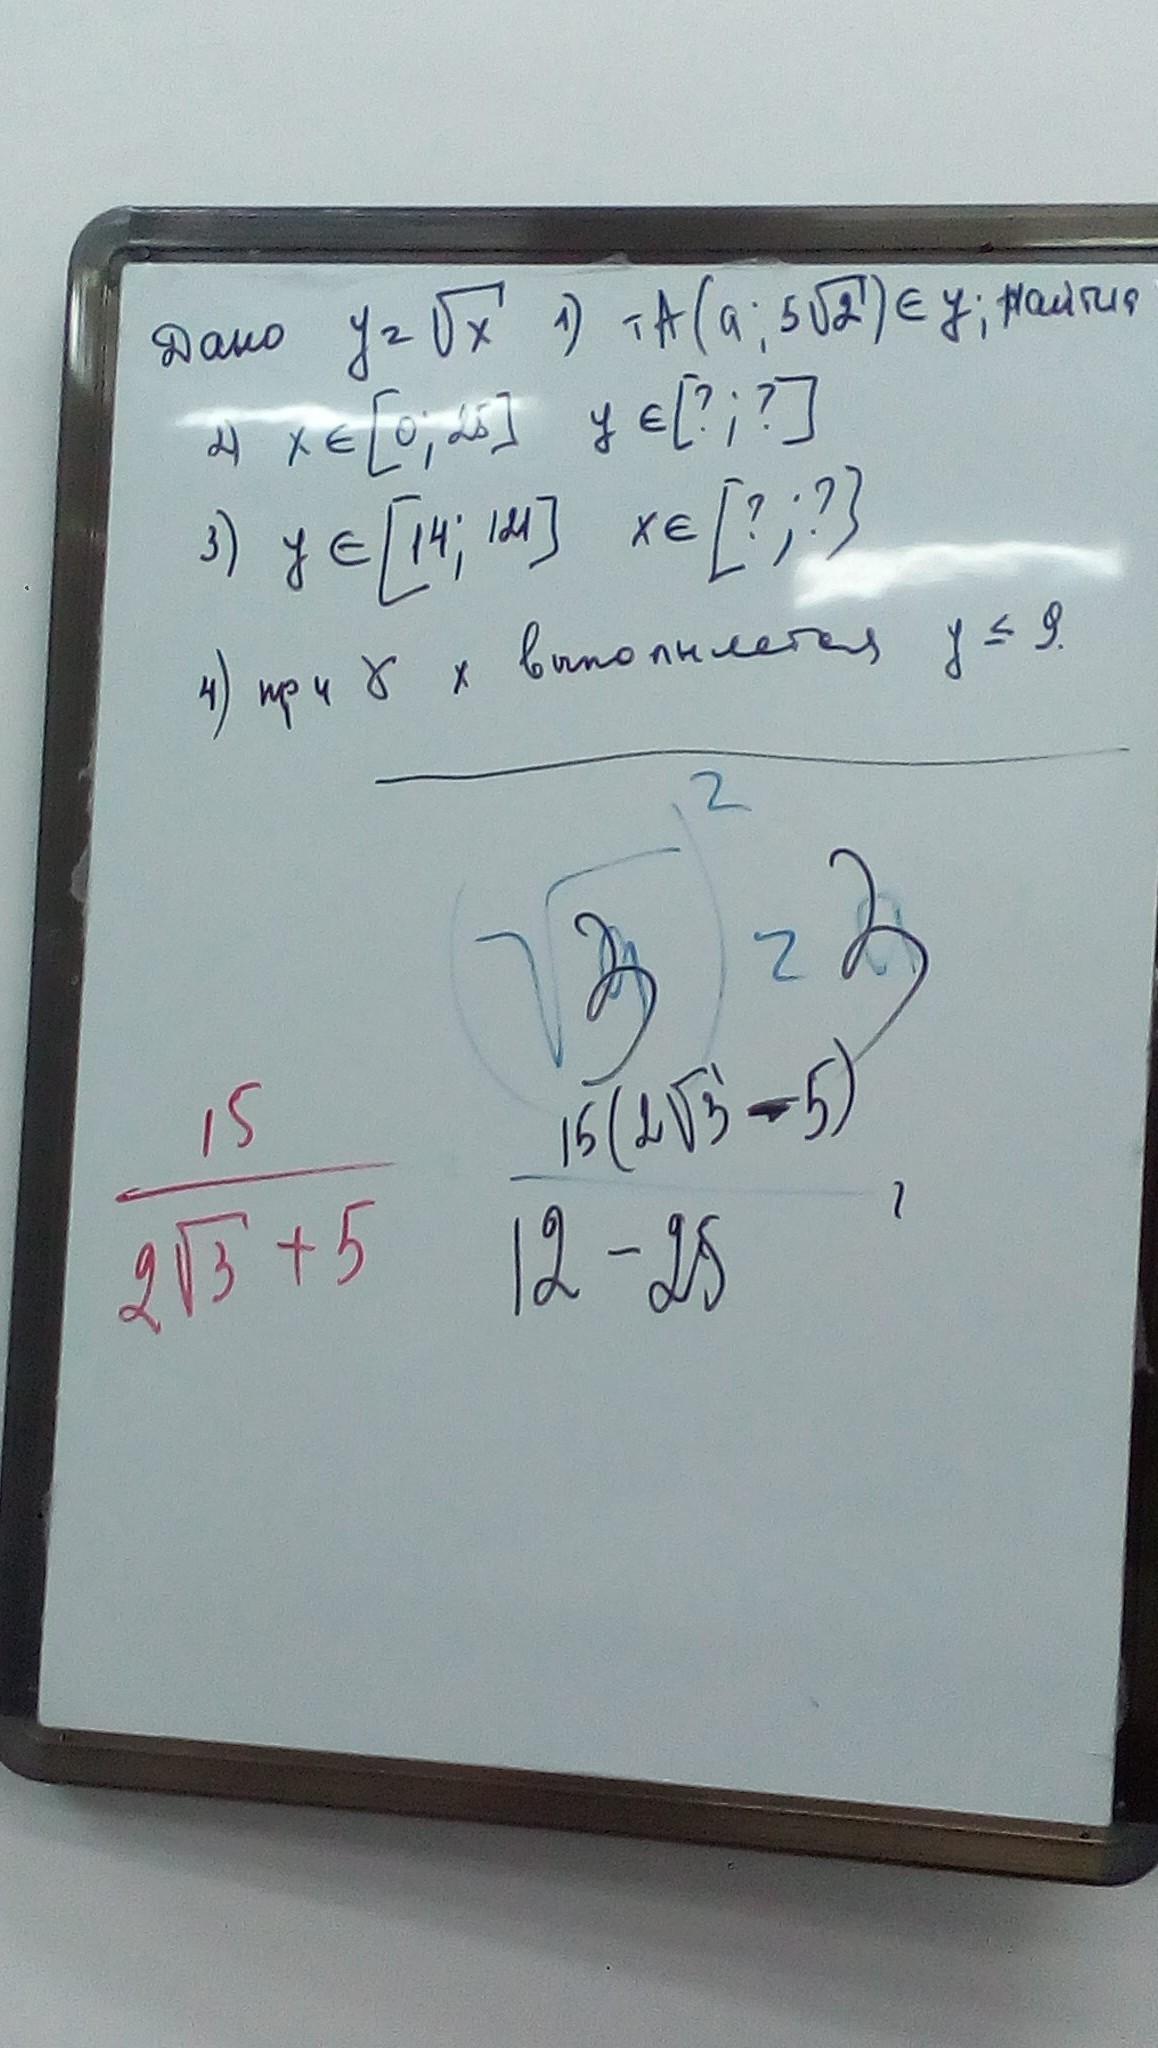 Дано y = √x 1) т A(a; 5√2) ∈ y; найти a
2) x ∈ [0; 25] y ∈ [?; ?]
3) y ∈ [14; 121] x ∈ [?; ?]
4) при x выполняется y ≤ 9.
(√)² =
15 / (2√3 + 5)
15(2√3 - 5) / (12 - 25)